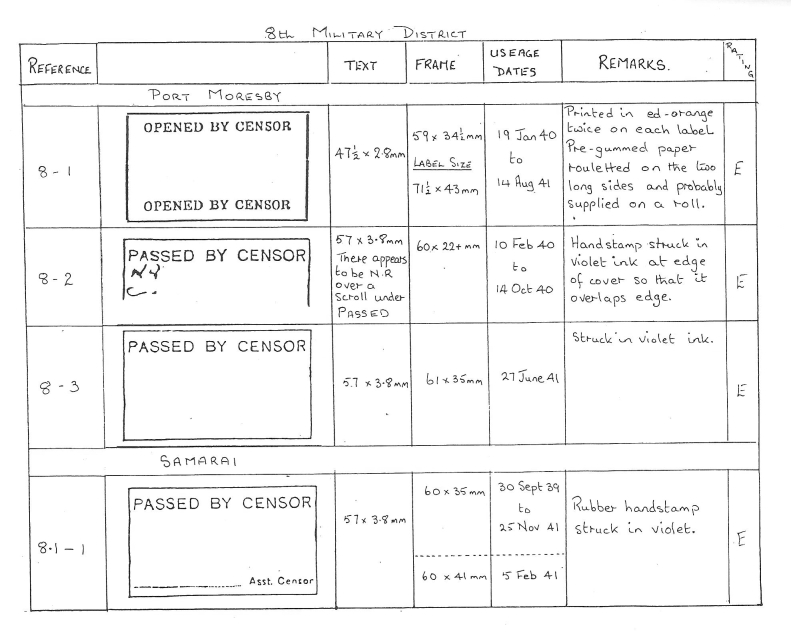 8th MILITARY DISTRICT
REFERENCE
TEXT
FRAME
USEAGE
DATES
REMARKS.
RATING
PORT MORESBY
8 - 1
OPENED BY CENSOR
OPENED BY CENSOR
47½ × 2·8mm
59 × 34½mm
LABEL SIZE
71½ × 43mm
19 Jan 40
to
14 Aug 41
Printed in ed-orange
twice on each label
Pre-gummed paper
rouletted on the two
long sides and probably
supplied on a roll.
E
8 - 2
PASSED BY CENSOR
57 × 3·8mm
There appears
to be N.R
over a
Scroll under
PASSED
60 × 22+ mm
10 Feb 40
to
14 Oct 40
Handstamp struck in
violet ink at edge
of cover so that it
overlaps edge.
E
8 - 3
PASSED BY CENSOR
57 × 3·8mm
61 × 35mm
27 June 41
Struck in violet ink.
E
SAMARAI
8·1 - 1
PASSED BY CENSOR
Asst. Censor
57 × 3·8mm
60 × 35 mm
30 Sept 39
to
25 Nov 41
60 × 41 mm
5 Feb 41
Rubber handstamp
struck in violet.
E